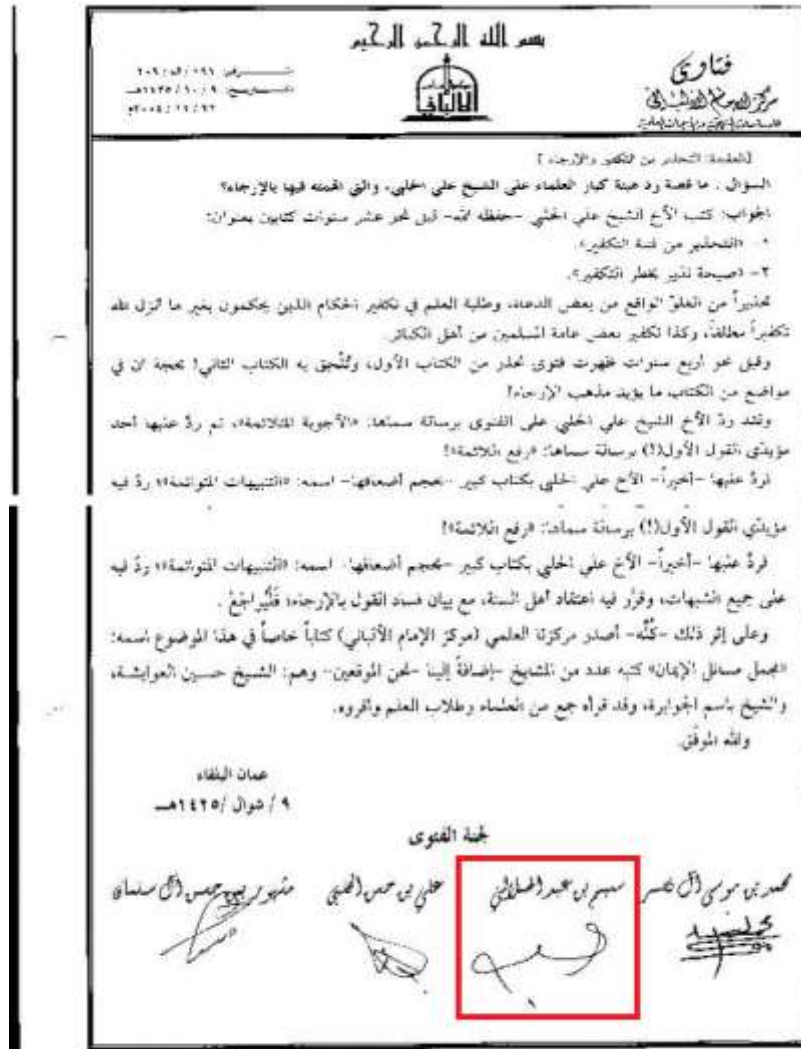 بسم الله الرحمن الرحيم
فتاوى
مركز الإمام الألباني
الألباني
[العقيدة: التحذير من التكفير والإرجاء]
السؤال: ما قصة رد هيئة كبار العلماء على الشيخ علي الحلبي، والتي اتهمته فيها بالإرجاء؟
الجواب: كتب الأخ الشيخ علي الحلبي -حفظه الله- قبل نحو عشر سنوات كتابين بعنوان:
١- «التحذير من فتنة التكفير».
٢- «صيحة نذير بخطر التكفير».
تحذيراً من الغلوّ الواقع من بعض الدعاة، وطلبة العلم في تكفير الحكام الذين يحكمون بغير ما أنزل الله
تكفيراً مطلقاً، وكذا تكفير بعض عامة المسلمين من أهل الكبائر.
وقبل نحو أربع سنوات ظهرت فتوى تحذر من الكتاب الأول، وتُلحق به الكتاب الثاني! بحجة أن في
مواضع من الكتاب ما يؤيد مذهب الإرجاء!
ولقد ردّ الأخ الشيخ علي الحلبي على الفتوى برسالة سماها: «الأجوبة المتلائمة»، ثم ردّ عليها أحد
مؤيدّي القول الأول(!) برسالة سماها: «رفع اللائمة»!
فردّ عليها -أخيراً- الأخ علي الحلبي بكتاب كبير -بحجم أضعافها- اسمه: «التنبيهات المتوائمة»؛ ردّ فيه
مؤيدّي القول الأول(!) برسالة سماها: «رفع اللائمة»!
فردّ عليها -أخيراً- الأخ علي الحلبي بكتاب كبير -بحجم أضعافها- اسمه: «التنبيهات المتوائمة»؛ ردّ فيه
على جميع الشبهات، وقرّر فيه اعتقاد أهل السنة، مع بيان فساد القول بالإرجاء؛ فَلْيُراجَعْ.
وعلى إثر ذلك -كُلِّه- أصدر مركزنا العلمي (مركز الإمام الألباني) كتاباً خاصاً في هذا الموضوع اسمه:
«مجمل مسائل الإيمان» كتبه عدد من المشايخ -إضافةً إلينا -نحن الموقعين- وهم: الشيخ حسين العوايشة،
والشيخ باسم الجوابرة، وقد قرأه جمع من العلماء وطلاب العلم وأقروه.
والله الموفّق.
عمان البلقاء
٩ / شوال /١٤٢٥هـ
لجنة الفتوى
محمد بن موسى آل نصر
سليم بن عيد الهلالي
علي بن حسن الحلبي
مشهور بن حسن آل سلمان